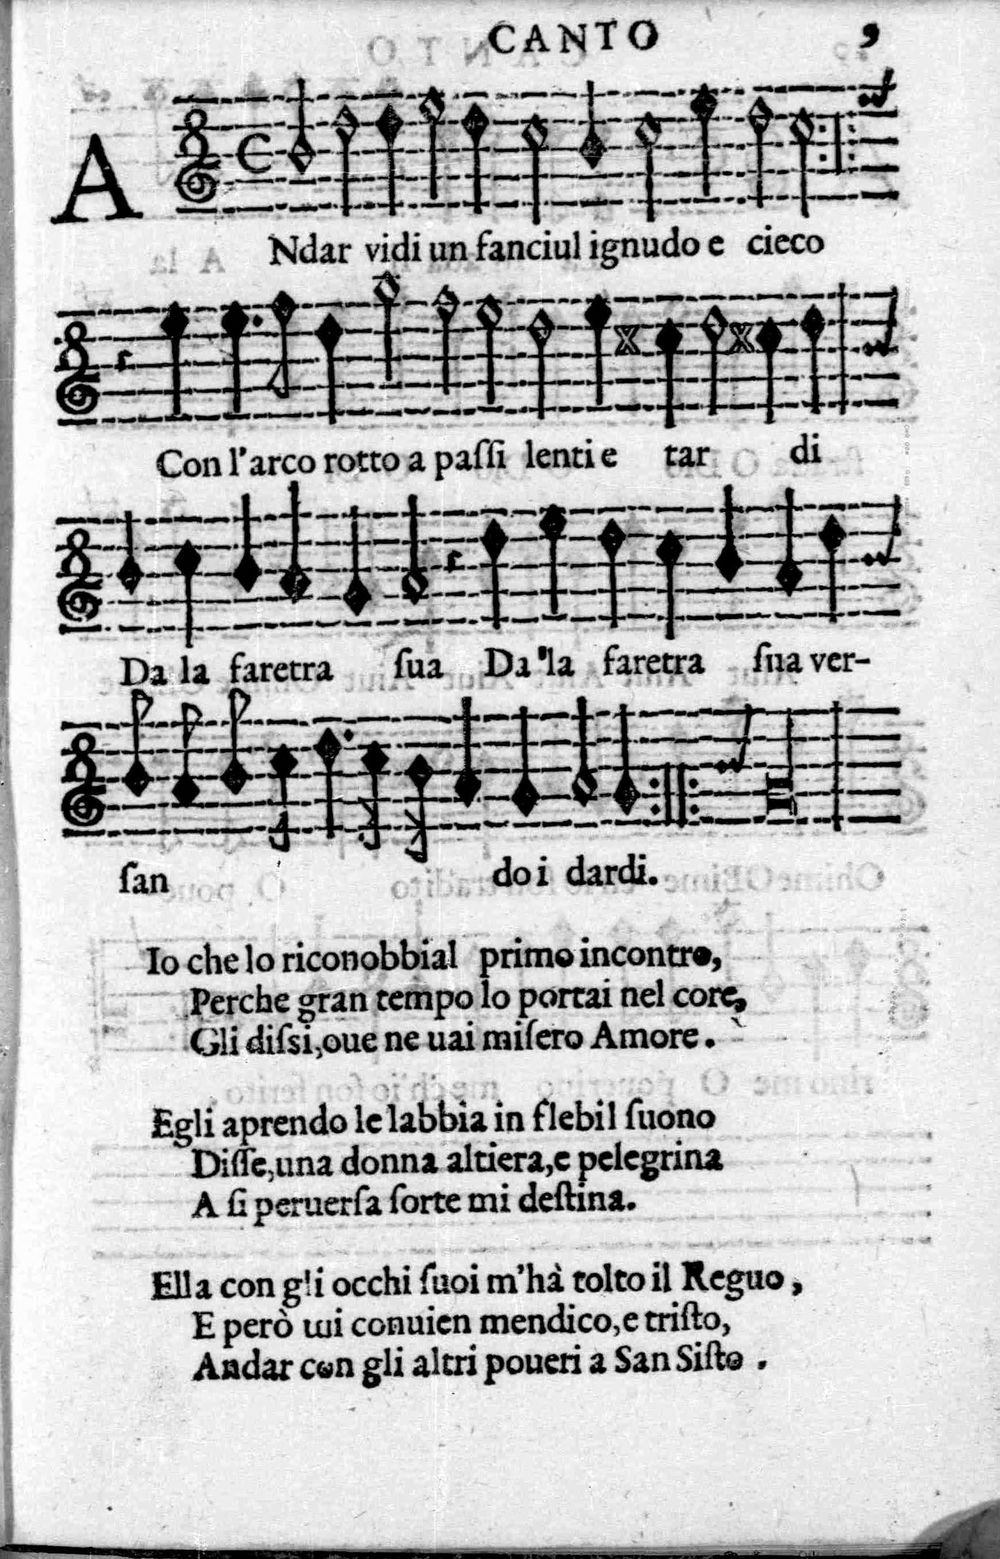 CANTO 9
A
Ndar vidi un fanciul ignudo e cieco
Con l'arco rotto a paſſi lenti e tar di
Da la faretra ſua Da la faretra ſua ver-
ſan do i dardi.
Io che lo riconobbi al primo incontro,
Perche gran tempo lo portai nel core,
Gli diſsi, oue ne uai miſero Amore.
Egli aprendo le labbia in flebil ſuono
Diſſe, una donna altiera, e pelegrina
A ſi peruerſa ſorte mi deſtina.
Ella con gli occhi ſuoi m'hà tolto il Reguo,
E però mi conuien mendico, e triſto,
Andar con gli altri poueri a San Siſto.